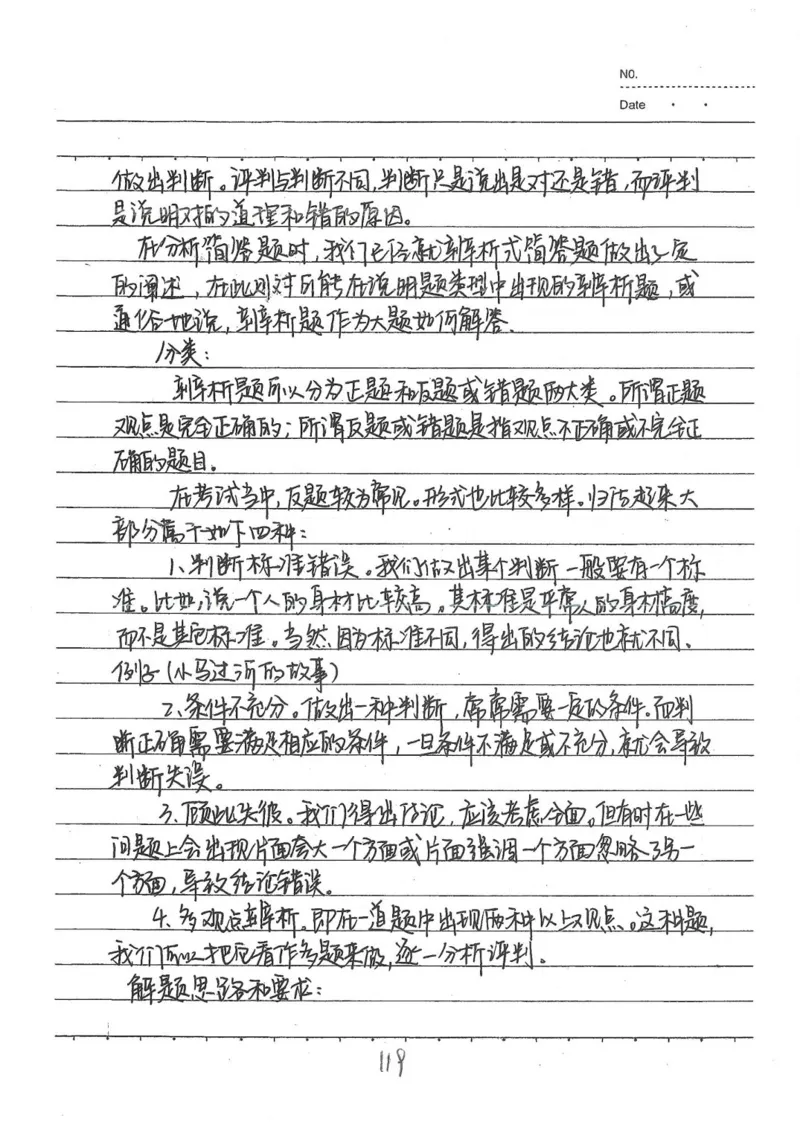 NO.
Date · ·
做出判断。评判与判断不同,判断只是说出是对还是错,而评判
是说明对的道理和错的原因。
在分析简答题时,我们已经就辨析式简答题做出了一定
的阐述,在此则对所能在说明题类型中出现的辨析题,或
通俗地说,辨析题作为大题如何解答.
分类:
辨析题可以分为正题和反题或错题两大类。所谓正题
观点是完全正确的;所谓反题或错题是指观点不正确或不完全正
确的题目。
在考试当中,反题较为常见。形式也比较多样。归结起来大
部分属于如下四种:
1、判断标准错误。我们做出某个判断一般要有一个标
准。比如,说一个人的身材比较高。其标准是平常人的身材高度,
而不是其它标准。当然,因为标准不同,得出的结论也就不同、
例子(小马过河的故事)
2、条件不充分。做出一种判断,常常需要一定的条件.而判
断正确需要满足相应的条件,一旦条件不满足或不充分,就会导致
判断失误。
3、顾此失彼。我们得出结论,应该考虑全面。但有时在一些
问题上会出现片面夸大一个方面或片面强调一个方面忽略了另一
个方面,导致结论错误。
4、多观点辨析.即在一道题中出现两种以上观点。这种题,
我们可以把它看作多题来做,逐一分析评判.
解题思路和要求:
119